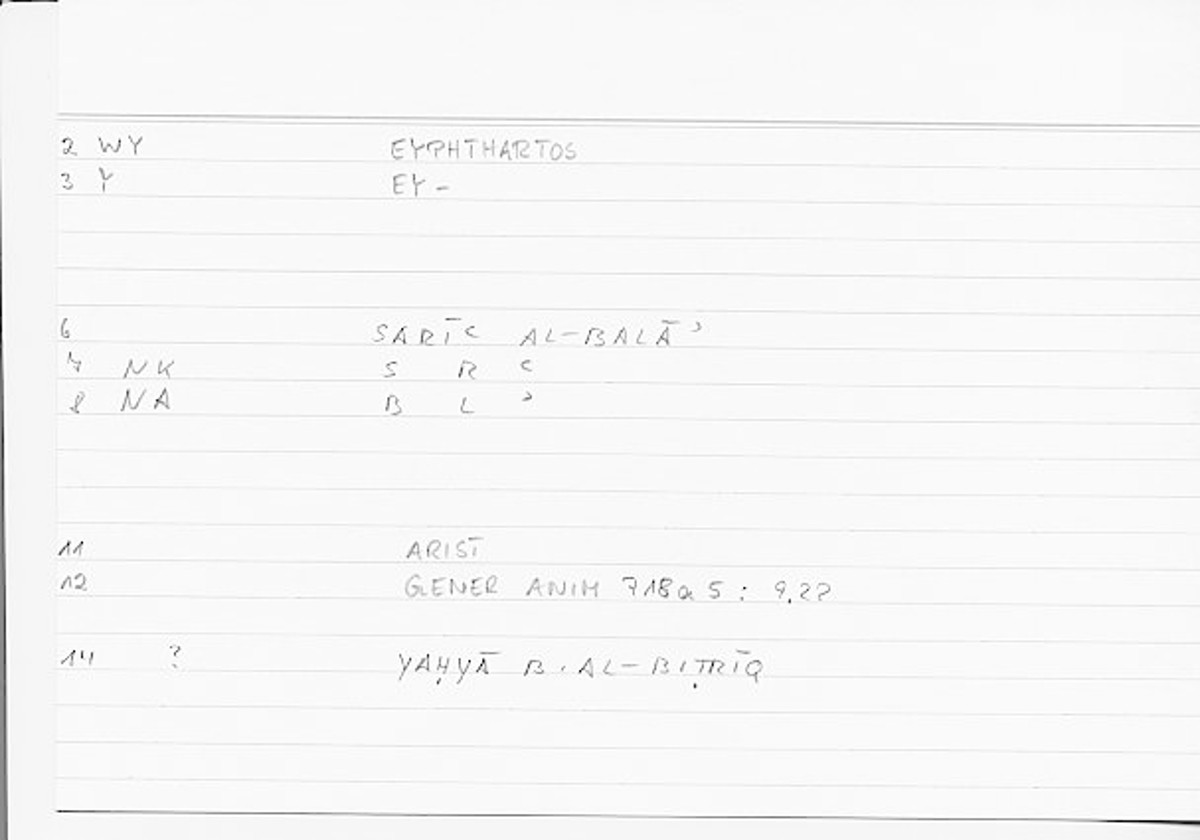 2 WY EYPHTHARTOS
3 Y EY-
6 SARĪʿ AL-BALĀʾ
7 NK S R ʿ
8 NA B L ʾ
11 ARIST
12 GENER ANIM 718a 5 : 9.22
14 ? YAḤYĀ B. AL-BIṬRĪQ